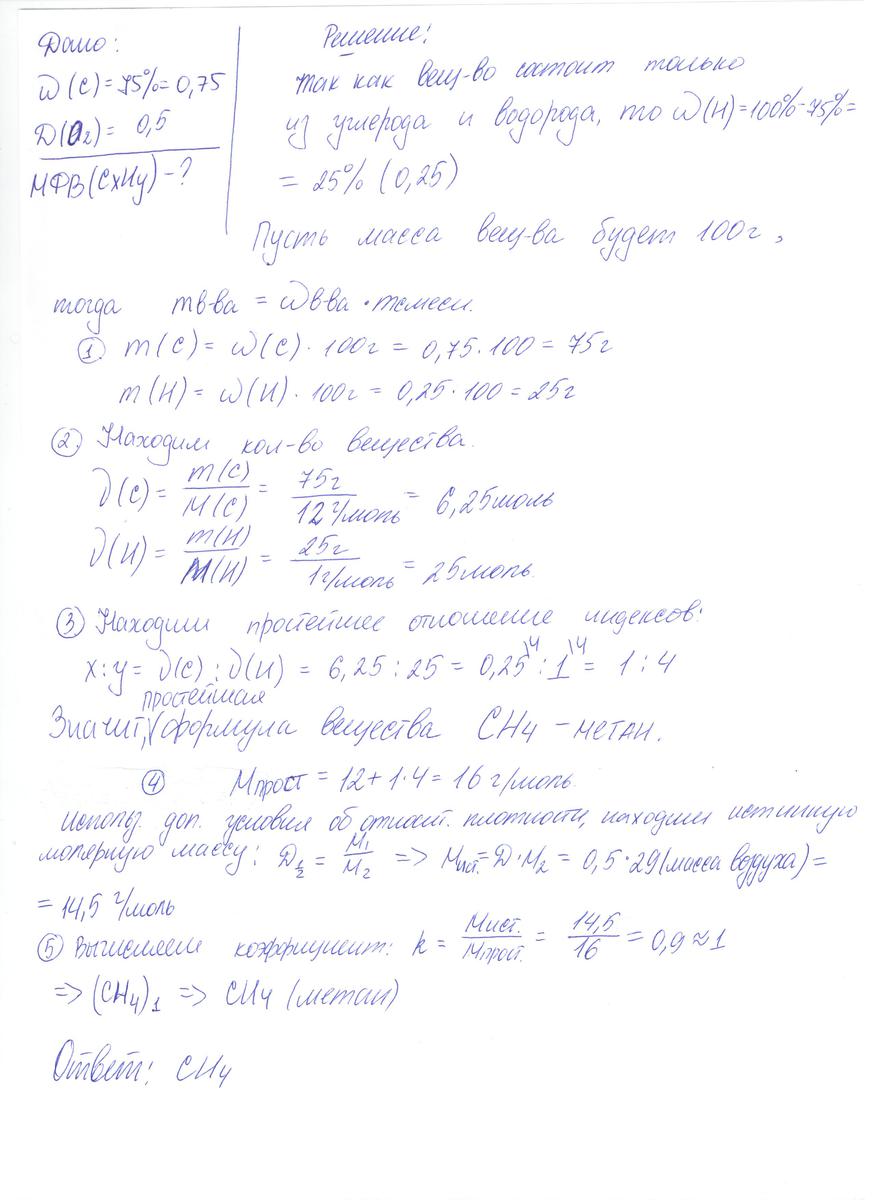 Дано:
ω(C)=75%=0,75
D(O2)= 0,5
МФВ(CxHy)-?
Решение:
Так как вещ-во состоит только
из углерода и водорода, то ω(H)=100%-75%=
= 25% (0,25)
Пусть масса вещ-ва будет 100г,
тогда mв-ва = ωв-ва · mсмеси.
① m(C) = ω(C) · 100г = 0,75 · 100 = 75г
m(H) = ω(H) · 100г = 0,25 · 100 = 25г
② Находим кол-во вещества.
ν(C) = m(C)/M(C) = 75г/12г/моль = 6,25моль
ν(H) = m(H)/M(H) = 25г/1г/моль = 25моль.
③ Находим простейшее отношение индексов:
x:y = ν(C) : ν(H) = 6,25 : 25 = 0,25\4 : 1\4 = 1 : 4
простейшая
Значит, √формула вещества CH4 – метан.
④ Mпрост = 12 + 1·4 = 16 г/моль.
использ. доп. условия об относит. плотности, находим истинную
молярную массу: D½ = M1/M2 => Mист.= D·M2 = 0,5·29(масса воздуха) =
= 14,5 г/моль
⑤ Вычисляем коэффициент: k = Mист./Mпрост. = 14,5/16 = 0,9 ≈ 1
=> (CH4)1 => CH4 (метан)
Ответ: CH4